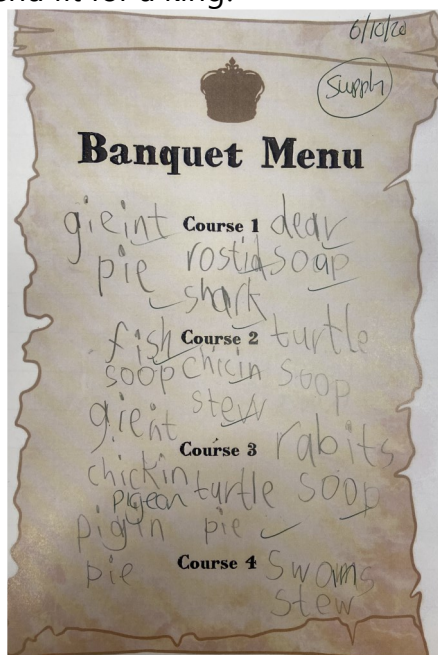 end fit for a king.
6/10/20
Supply
Banquet Menu
gieint Course 1 dear
pie rostid soap
shark
fish Course 2 turtle
soop chicin soop
gieint stew
Course 3 rabits
chickin turtle soop
pigeon
pigin pie
pie Course 4 Swans
stew